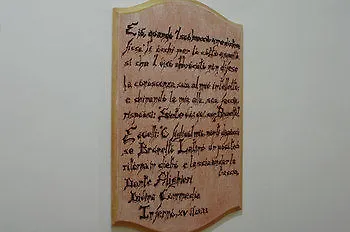 E io, quando 'l suo braccio a me distese
ficcai li occhi per lo cotto aspetto
si che 'l viso abbrusciato non difese
la conoscenza sua al mio intelletto;
e chinando la mia alla sua faccia
rispuosi: Siete voi qui, ser Brunetto?
E quelli: O figliuol mio, non ti dispiaccia
se Brunetto Latino un poco teco
ritorna 'n dietro e lascia andar la
traccia.
Dante Alighieri
Divina Commedia
Inferno, XV